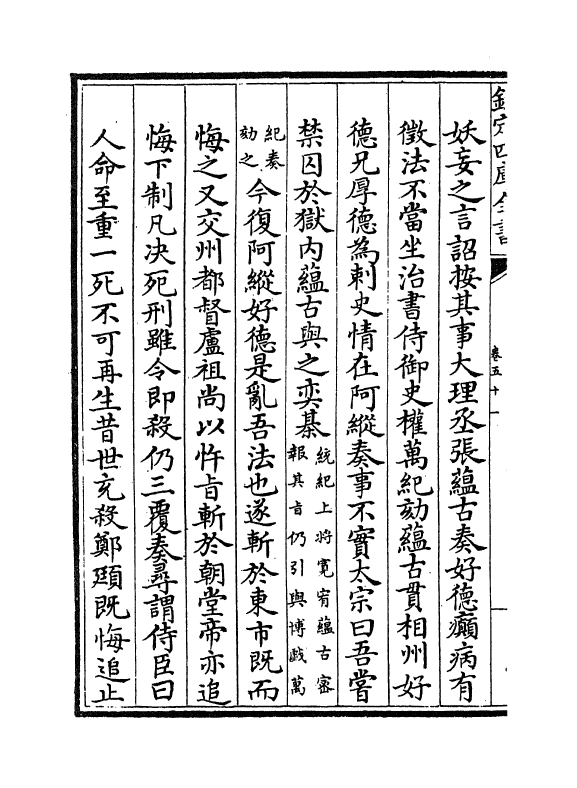 欽定四庫全書
卷五十一
妖妄之言詔按其事大理丞張藴古奏好德癲病有
徵法不當坐治書侍御史權萬紀劾藴古貫相州好
德兄厚德為刺史情在阿縱奏事不實太宗曰吾嘗
禁囚於獄内藴古與之奕棊統紀上将寛宥藴古密報其旨仍引與博戯萬
紀奏劾之今復阿縱好德是亂吾法也遂斬於東市既而
悔之又交州都督盧祖尚以忤旨斬於朝堂帝亦追
悔下制凡决死刑雖令即殺仍三覆奏尋謂侍臣曰
人命至重一死不可再生昔世充殺鄭頲既悔追止